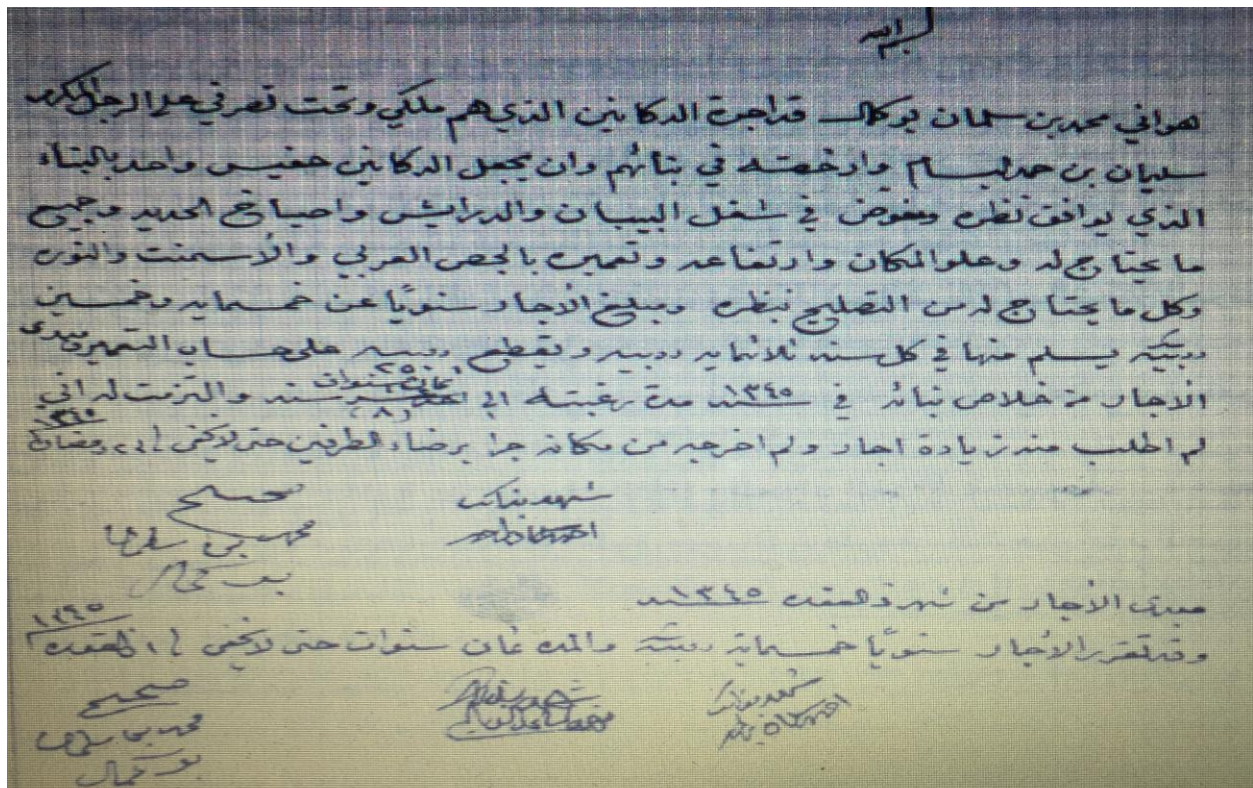 بسم الله
هو اني محمد بن سلمان بو كمال قد اجرة الدكانين الذي هم ملكي وتحت تصرفي على الرجل المكرم
سليمان بن حمد البسام وارخصته في بنائهم وان يجعل الدكانين حفيس واحد بالبناء
الذي يوافق نظره ومفوض في شغل البيبان والدرايش واصياخ الحديد وجميع
ما يحتاج له وعلو المكان وارتفاعه وتعميره بالجص العربي والأسمنت والنوره
وكل ما يحتاج له من التصليح بنظره ومبلغ الاجار سنويًا عن خمسمايه وخمسين
روبيّه يسلم منها في كل سنه ثلاثمايه روبيه ويقطع ٢٥٠ روبيه على حساب التعمير ومبدى
الاجار من خلاص بنائه في سنة ١٣٤٥ مدة رغبته الى ثمان سنوات (٨) سنه والتزمت له اني
لم اطلب منه زيادة اجار ولم اخرجه من مكانه جرا برضاء الطرفين حتى لا يخفى رمضان ١٣٤٥
شهد بذلك
صحيح
محمد بن سلمان
بو كمال
مبدى الأجار من شهر ذ القعدة سنة ١٣٤٥
وقد تقرر الأجار سنويًا خمسماية روبيّة والمده ثمان سنوات حتى لا يخفى القعده ١٣٤٥
شهد بذلك
شهد بذلك
صحيح
محمد بن سلمان
بو كمال